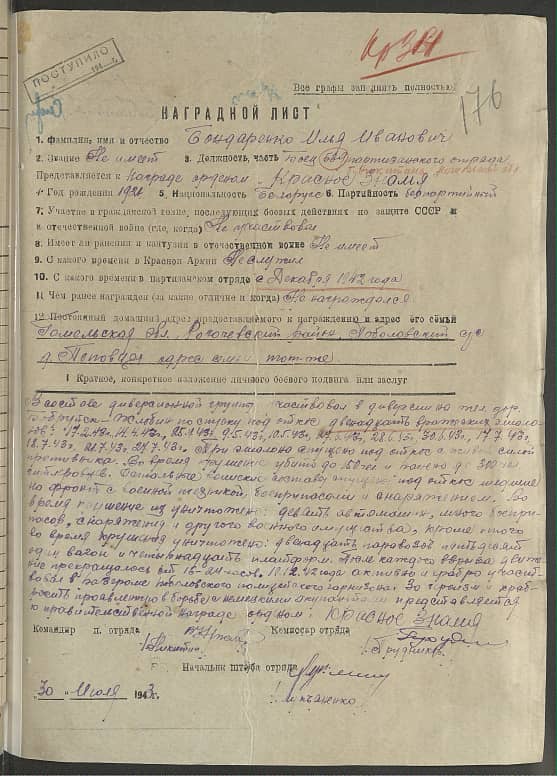 ПОСТУПИЛО
194 г.
Кр ЗН
176
Все графы заполнять полностью
НАГРАДНОЙ ЛИСТ
1. Фамилия, имя и отчество Бондаренко Илья Иванович
2. Звание Не имеет 3. Должность, часть боец партизанского отряда
Представляется к Награде орденом Красное Знамя
4. Год рождения 5. Национальность Белорус 6. Партийность беспартийный
7. Участие в гражданской войне, последующих боевых действиях по защите СССР и
в отечественной войне (где, когда) Не участвовал
8. Имеет ли ранения и контузия в отечественной войне Не имеет
9. С какого времени в Красной Армии Не служил
10. С какого времени в партизанском отряде с Декабря 1942 года
11. Чем ранее награжден (за какие отличие и когда) Не награждался
12. Постоянный домашний адрес представляемого к награждению и адрес его семьи
Гомельская обл. Рогачевский район
д. адрес семьи тот-же
I Краткое, конкретное изложение личного боевого подвига или заслуг
В составе диверсионной группы участвовал в диверсиях на жел. дор.
Бобруйск - Жлобин по спуску под откос двенадцать вражеских эшело-
нов: 17.2.43г. 14.4.43г. 9.5.43г. 10.5.43г. 28.6.43г. 30.6.43г. 17.7.43г.
18.7.43г. 21.7.43г. 24.7.43г. эшелона спущено под откос с живой силой
противника. Во время крушения убито до 150 и ранено до 300
гитлеровцев. Остальные эшелоны спущены под откос шедшие
на фронт с военной техникой, боеприпасами и снаряжением. Во
время крушение уничтожено: девять автомашин, много боепри-
пасов, снаряжения и другого военного имущества, кроме этого
во время крушения уничтожено: двенадцать паровозов пятьдесят
один вагон и четырнадцать платформ. После каждого взрыва движе-
ние прекращалось на 18-24 часов. 12.42 года активно и храбро участ-
вовал в разгроме немецкого гарнизона. За отвагу и храб-
рость проявленную в борьбе с немецкими оккупантами представляется
к правительственной награде орденом: Красное Знамя
Командир п. отряда Комиссар отряда
/Никитин/ /Прудников/
Начальник штаба отряда
/Лукьяненко
"30" Июля 1943 г.